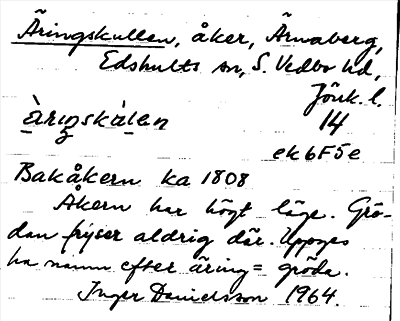 Äringskullen, åker, Ärnaberg,
Edshults sn, S. Vedbo hd,
Jönk. l.
ä̀riŋskàlen 14
ek 6F5e
Bakåkern ka 1808
Åkern har högt läge. Grö-
dan fryser aldrig där. Uppges
ha namn efter äring = gröda.
Inger Danielsson 1964.